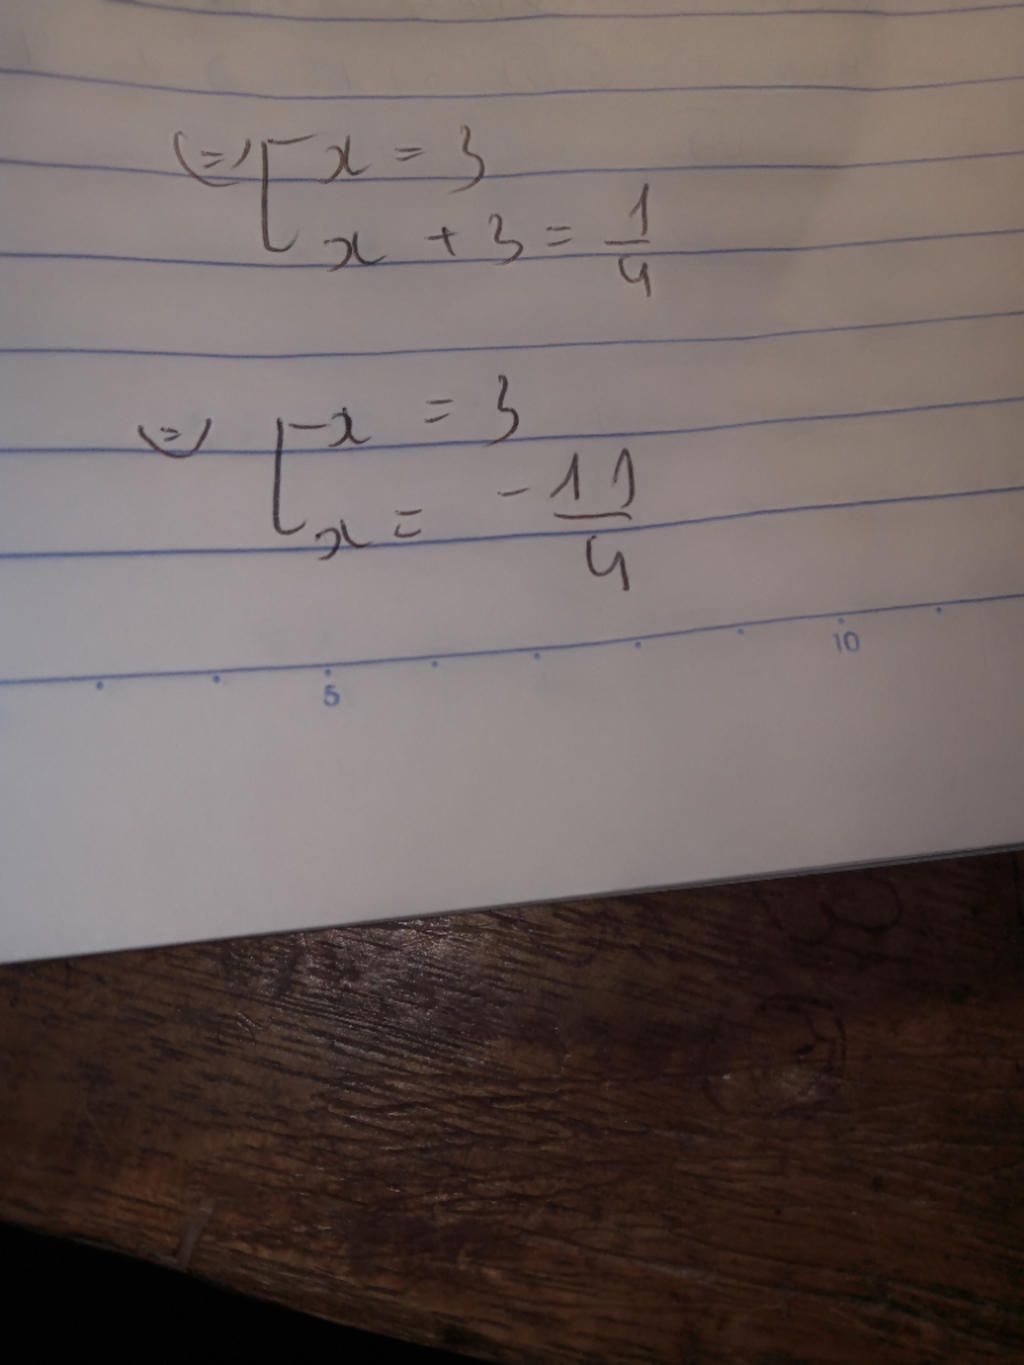 (=) [ x = 3
x + 3 = 1/4
(=) [ x = 3
x = - 11/4
5 10